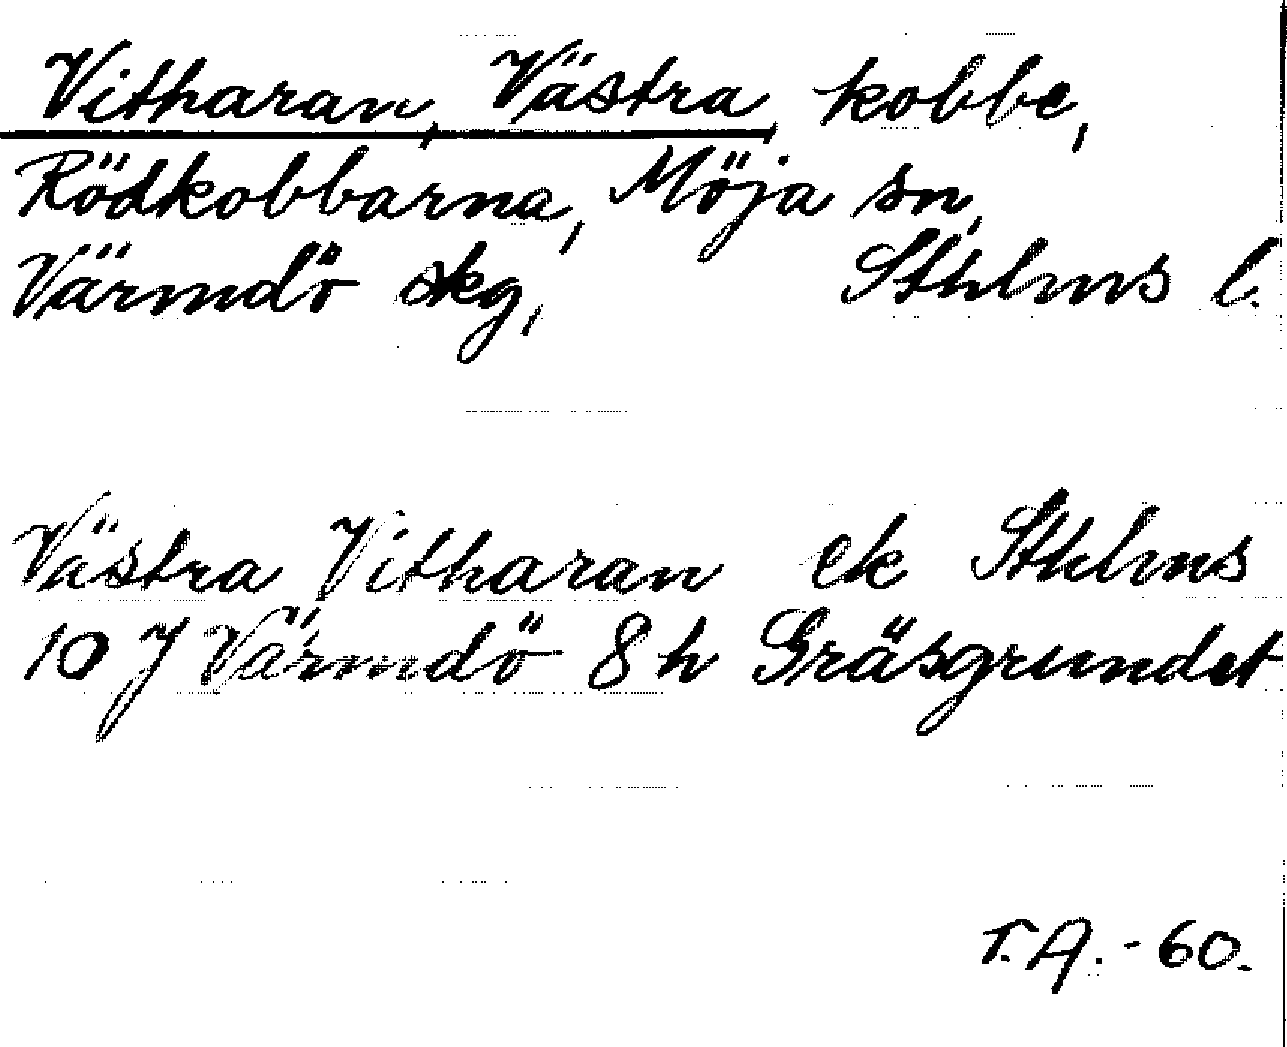 Vitharan, Västra, kobbe,
Rödkobbarna, Möja sn,
Värmdö skg, Sthlms l.
Västra Vitharan ek Sthlms
10 J Värmdö 8 h Gräsgrundet
T.A. - 60.